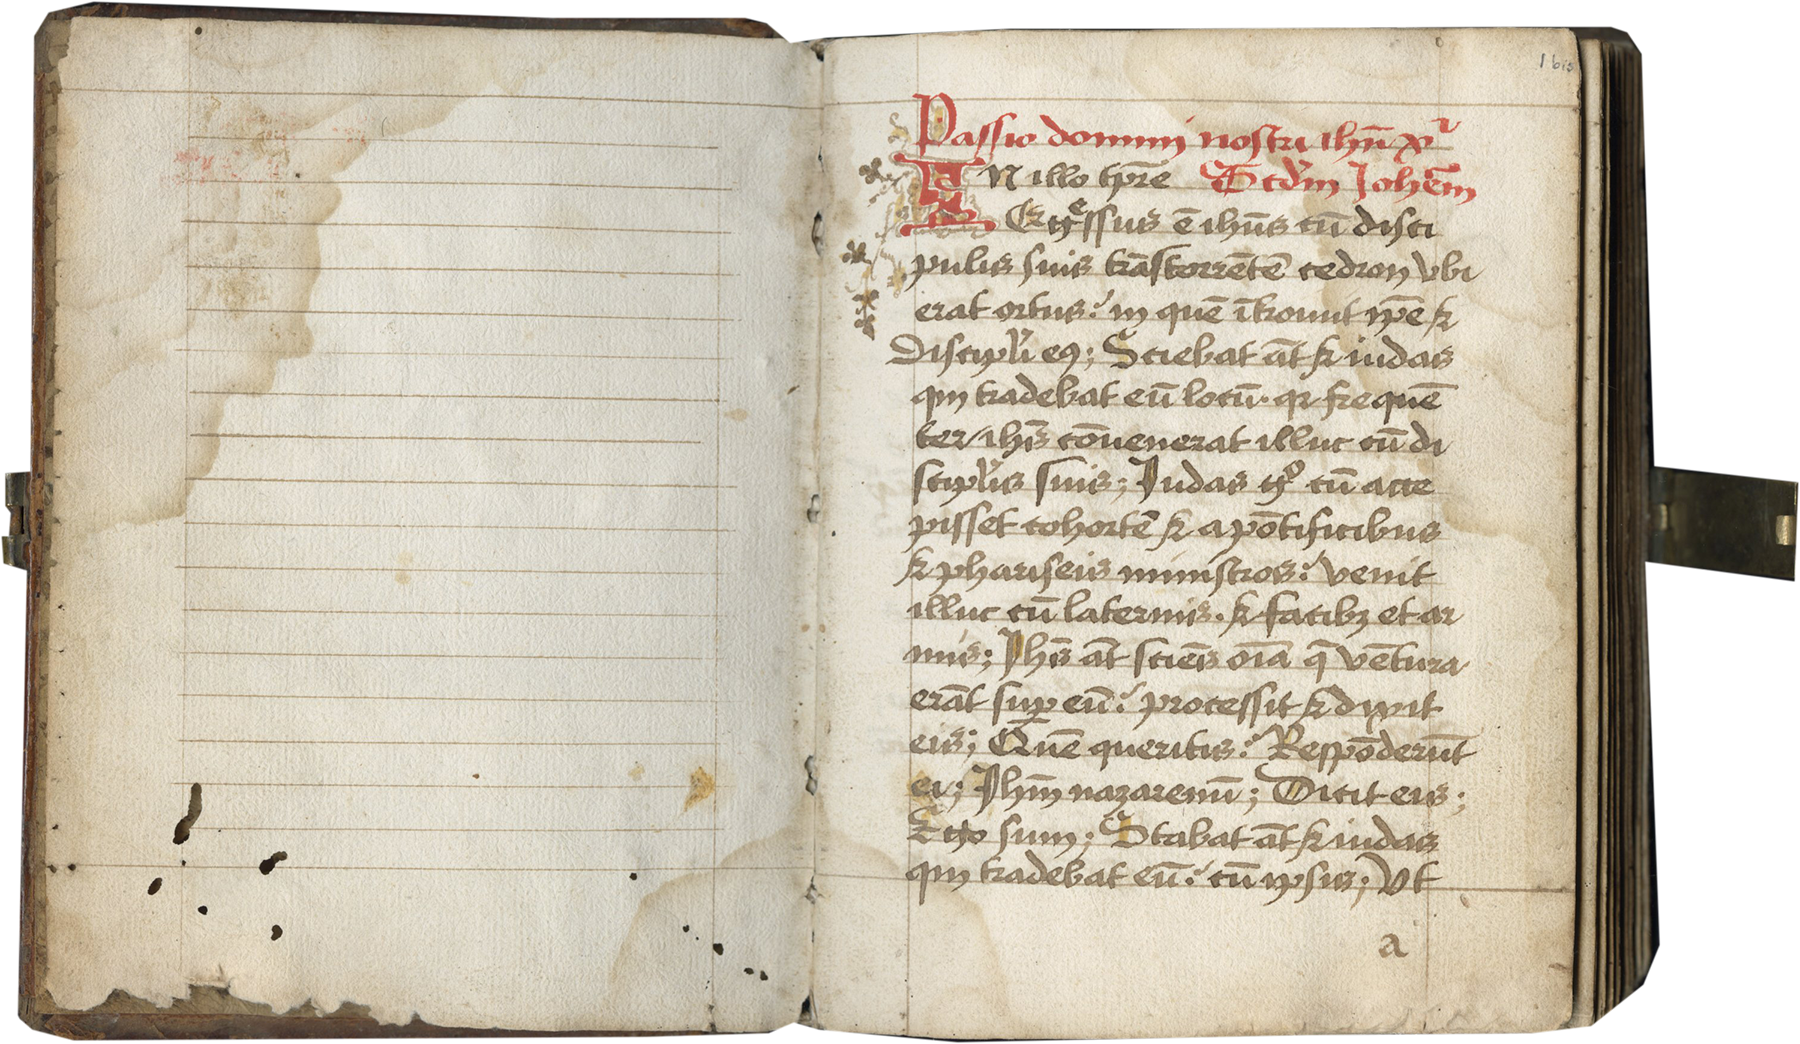 1 bis
Passio domini nostri ihū xp̄i
IN illo tp̄re Scd̄m Johēm
Egͤssus ē ihūs cū disci
pulis suis trāstorrētē cedron vbi
erat ortus: in quē ītrouit ip̄e &
discipl̄i eꝰ; Sciebat āt & iudas
qui tradebat eū locū. qr frequē
ter ihs̄ cōuenerat illuc cū di
scipl̄is suis; Judas gͦ cū acce
pisset cohortē & a pōtificibus
& phariseis ministros: venit
illuc cū laternis. & facibꝫ et ar
mis; Jhs̄ āt sciēs oīa q̄ vētura
erāt suꝑ eū: processit & dixit
eis; Quē queritis: Respōderūt
ei; Jhm̄ nazarenū; Dicit eis;
Ego sum; Stabat āt & iudas
qui tradebat eū: cū ipsis; Vt
a